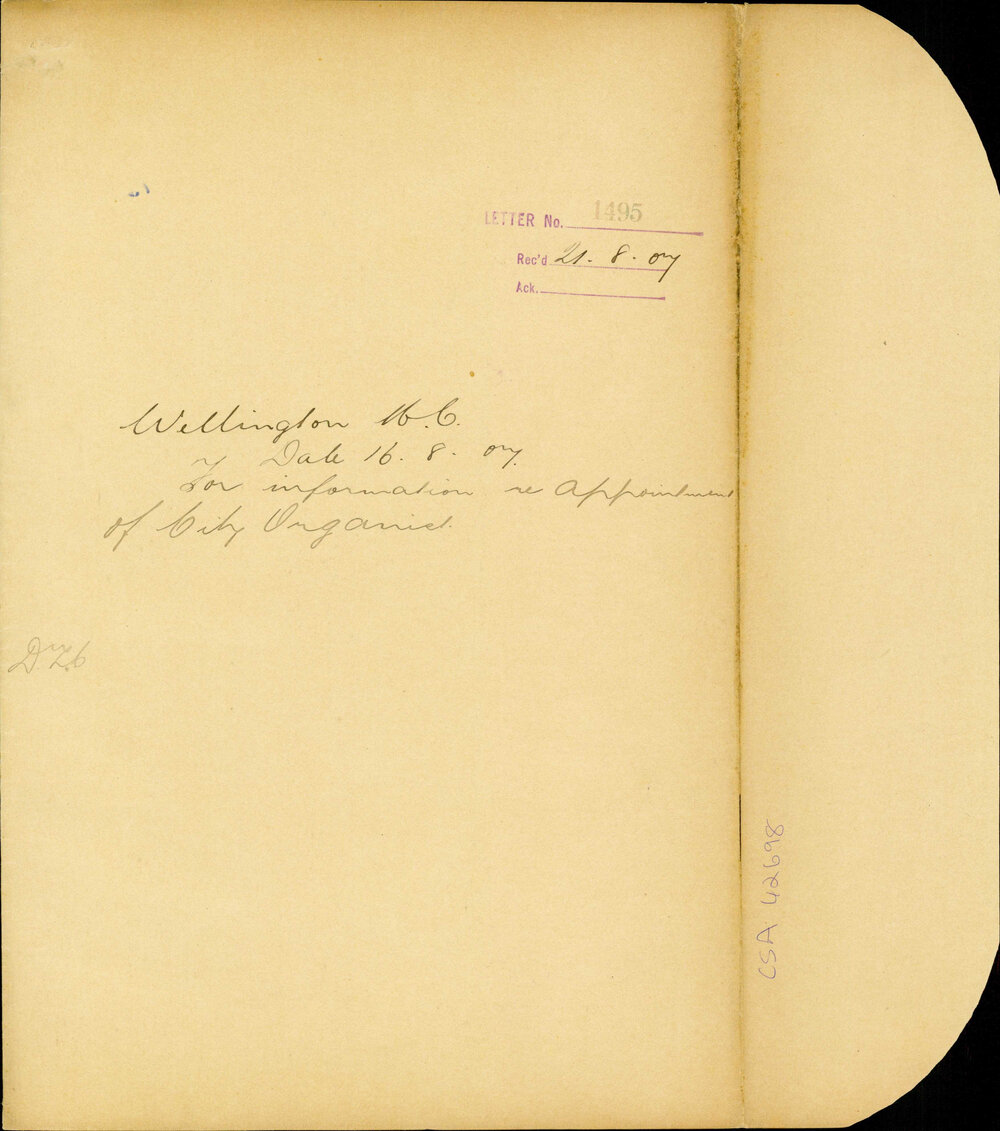 LETTER No. 1495
Rec'd 21. 8. 07
Ack.
Wellington
Date 16. 8. 07.
For information re appointment
of City Organist.
CSA 42698